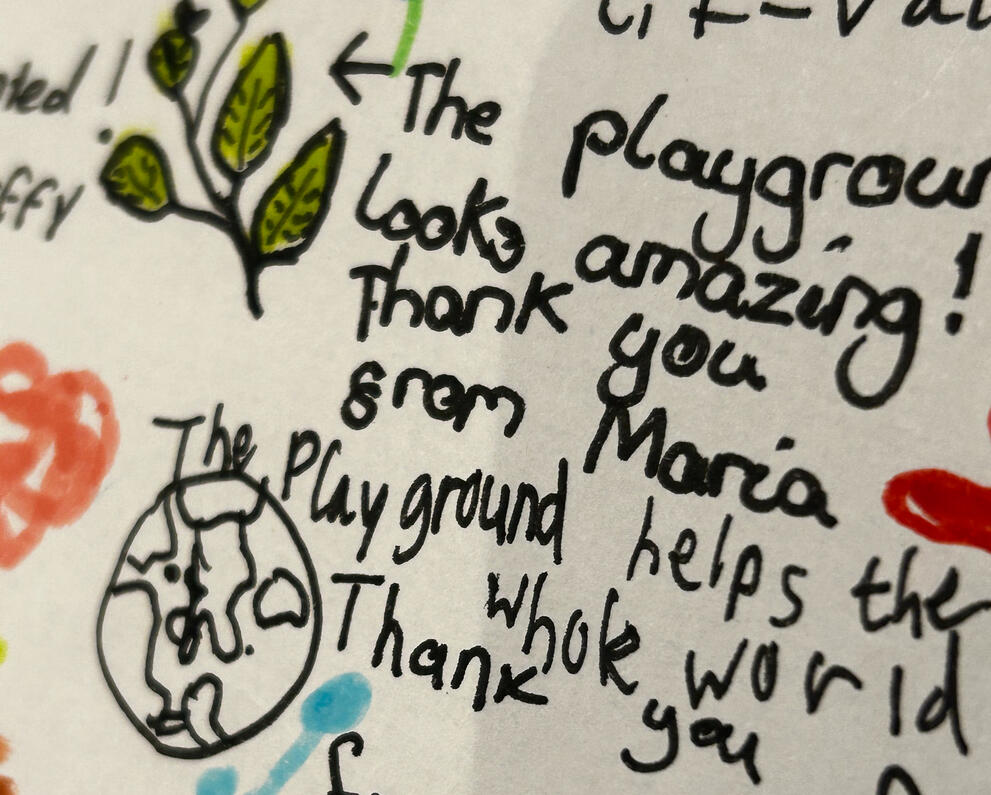 The playgroun
looks amazing!
Thank you
from Maria
The Playground helps the
whole world
Thank you